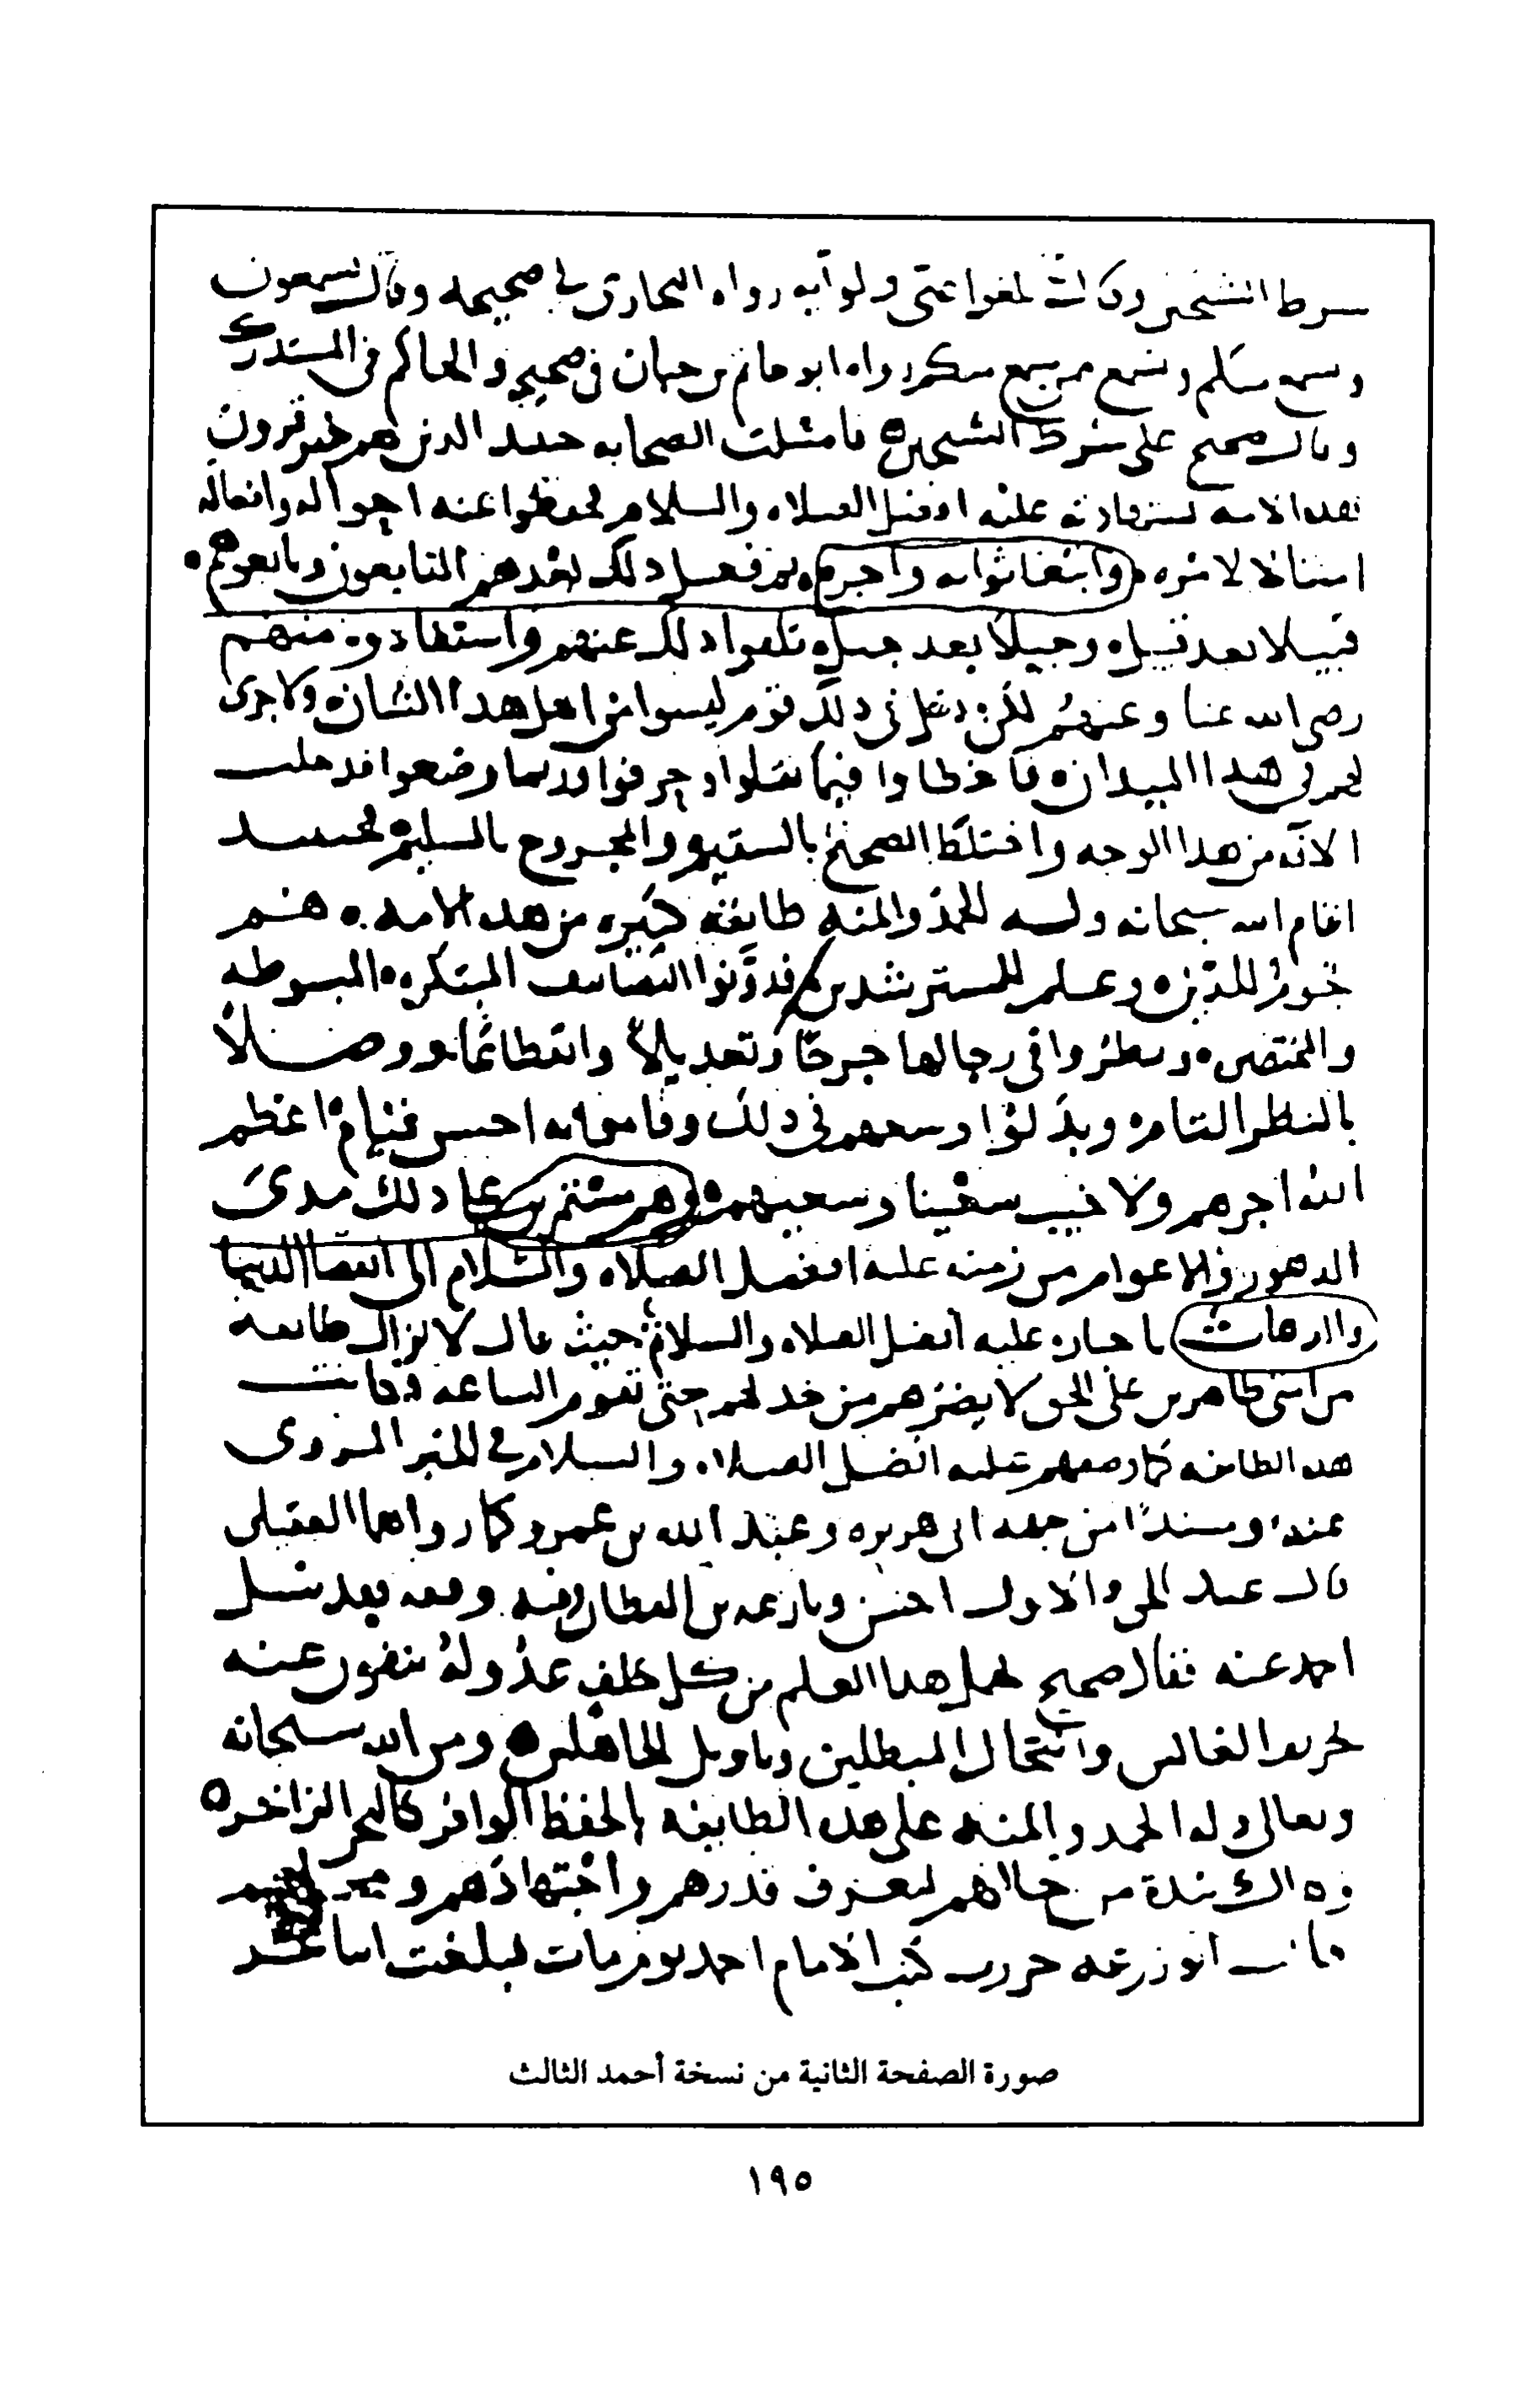 شرط الشيخين وقال بلغوا عني ولو آية رواه البخاري في صحيحه وقال تسمعون
ويسمع منكم ويسمع ممن يسمع منكم رواه ابو حاتم بن حبان في صحيحه والحاكم في المستدرك
وقال صحيح على شرط الشيخين فامتثلت الصحابة حينئذ الذين هم خير قرون
هذه الامة بشهادته عليه افضل الصلاه والسلام لحفظوا عنه احواله وافعاله
امتثالا لامره وابتغا ثوابه واجره ثم فعل ذلك بعدهم التابعون وتابعوهم
قبيلا بعد قبيل وجيلا بعد جيل تلقوا ذلك عنهم واستفادوه منهم
رضي الله عنا وعنهم لكن دخل في ذلك قوم ليسوا من اهل هذا الشان ولا جرى
لهم في هذا الميدان فاخطاوا فيما نقلوا وحرفوا وربما وضعوا فدخلت
الآفة من هذا الوجه واختلط الصحيح بالسقيم والمجروح بالسليم فحينئذ
اقام الله سبحانه وله الحمد والمنة طائفة كثيرة من هذه الامة هم
نجوم للدين وعلم للمسترشدين فدونوا التصانيف المبتكره المبسوطه
والمختصره ونظروا في رجالها جرحا وتعديلا وانقطاعا ووصلا
بالنظر التام وبذلوا وسعهم في ذلك وقاموا به احسن قيام اعظم
الله اجرهم ولا خيب سعينا وسعيهم وهم مستمرين على ذلك مدى
الدهور والاعوام من زمنه عليه افضل الصلاه والسلام الى انقضا الدنيا
والذهاب باخباره عليه افضل الصلاه والسلام حيث قال لا تزال طائفة
من امتي ظاهرين على الحق لا يضرهم من خذلهم حتى تقوم الساعة وكانت
هذه الطائفه كما وصفهم عليه افضل الصلاه والسلام في الخبر المروي
عنه مسندا من جهة ابي هريره وعبد الله بن عمرو كما رواهما العقيلي
قال عبد الحق والاول احسن ونازعه بن القطان وفيه وقفه بعد سئل
احمد عنه فقال صحيح يحمل هذا العلم من كل خلف عدوله ينفون عنه
تحريف الغالين وانتحال المبطلين وتاويل الجاهلين ومن الله سبحانه
وتعالى وله الحمد والمنه على هذه الطايفه بالحفظ الوافر كالبحر الزاخر
وهاك نبذة من حالاهم لتعرف قدرهم واجتهادهم
قال ابو زرعه حررت كتب الامام احمد يوم مات فبلغت اثنا عشر
صورة الصفحة الثانية من نسخة أحمد الثالث
١٩٥